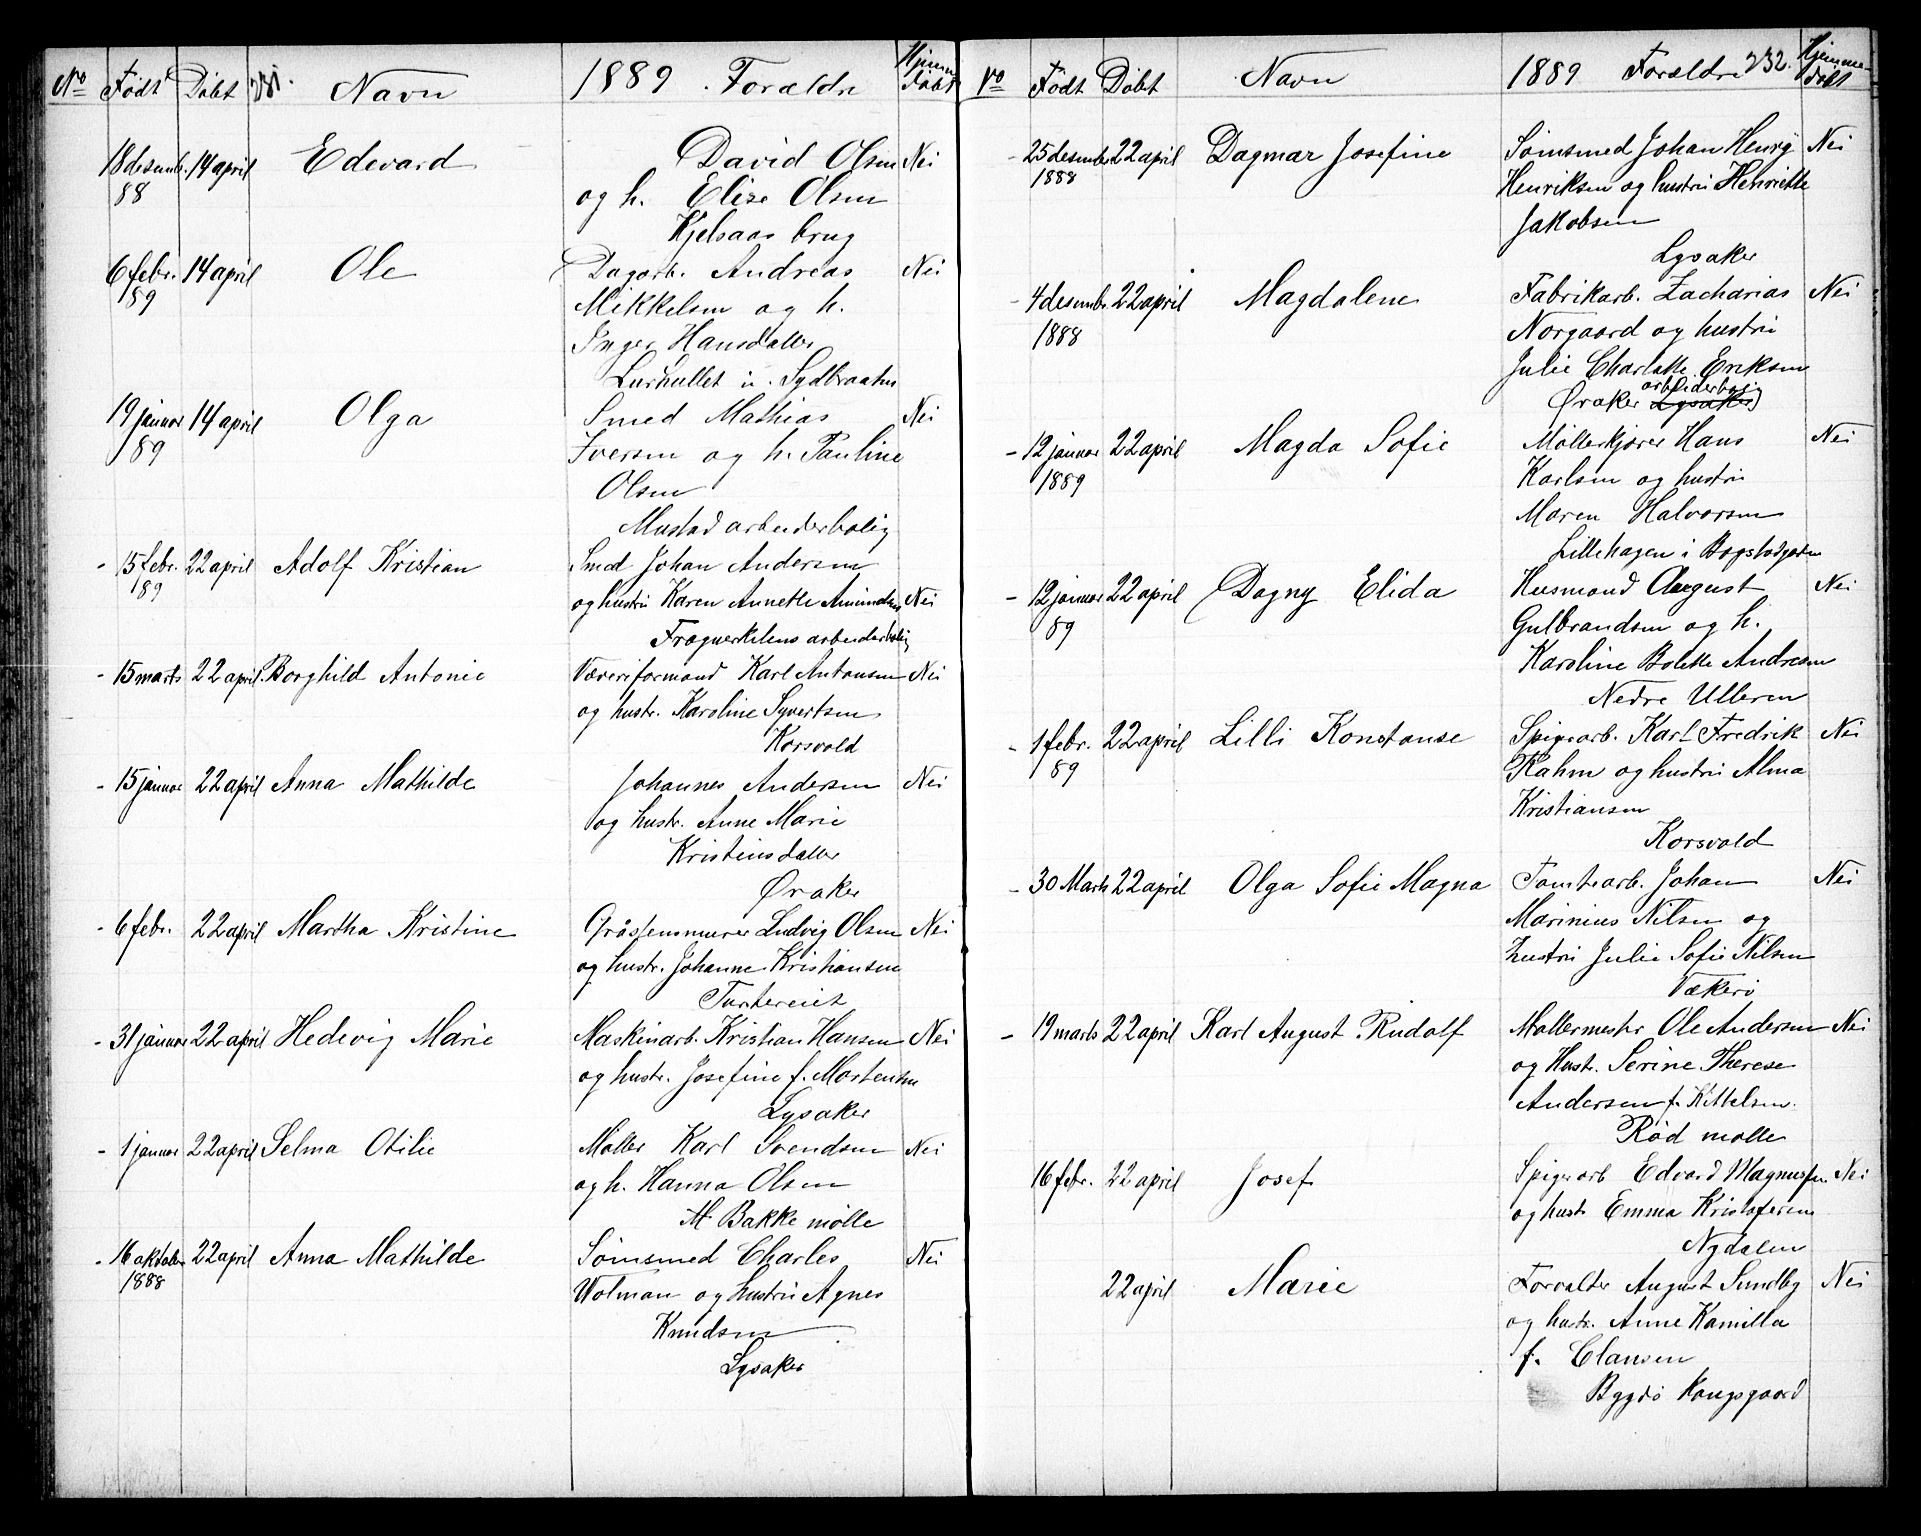 No Født Døbt 231. Navn 1889. Forældre Hjemmedøbt
18 desemb. 14 april Edevard David Olsen Nei
88 og h. Elise Olsen
Kjelsaas brug
6 febr. 14 april Ole Dagarb. Andreas Nei
89 Mikkelsen og h.
Inger Hansdatter
Lurhullet u. Sydbraaten
19 januar 14 april Olga Smed Mathias Nei
89 Iversen og h. Pauline
Olsen
Mustad arbeiderbolig
- 15 febr. 22 april Adolf Kristian Smed Johan Andersen
89 og hustru Karen Annette Amundsen Nei
Frognerkilens arbeiderbolig
- 15 marts 22 april. Borghild Antonie Væveriformand Karl Antonsen Nei
og hustr. Karoline Syvertsen
Korsvold
- 15 januar 22 april Anna Mathilde Johannes Andersen Nei
og hustr. Anne Marie
Kristensdatter
Øraker
- 6 febr. 22 april Martha Kristine Gråstensmurer Ludvig Olsen Nei
og hustr. Johanne Kristiansen
- 31 januar 22 april Hedevig Marie Maskinarb. Kristian Hansen Nei
og hustr. Josefine f. Mortensen
Lysaker
- 1 januar 22 april Selma Otilie Møller Karl Svendsen Nei
og h. Hanna Olsen
M Bakke mølle
- 16 oktober 22 april Anna Mathilde Sømsmed Charles Nei
1888 Wolman og hustru Agnes
Knudsen
Lysaker
No Født Døbt Navn 1889 Forældre 232. Hjemmedøbt
- 25 desember 22 april Dagmar Josefine Sømsmed Johan Henrÿ Nei
1888 Henriksen og hustru Henriette
Jakobsen
Lysaker
- 4 desembr. 22 april Magdalene Fabrikarb. Zacharias Nei
1888 Norgaard og hustru
Julie Charlotte Eriksen
arbeiderbolig
Øraker Lysaker
- 12 januar 22 april Magda Sofie Møllerkjører Hans Nei
1889 Karlsen og hustru
Maren Halvorsen
Lillehagen i Bogstadgaden
- 12 januar 22 april Dagny Elida Husmand August Nei
89 Gulbrandsen og h.
Karoline Bolette Andresen
Nedre Ulleren
- 1 febr. 22 april Lilli Konstanse Spigerarb. Karl Fredrik Nei
89 Rahm og hustru Alma
Kristiansen
Korsvold
- 30 Marts 22 april Olga Sofie Magna Tomtearb. Johan Nei
Marinius Nilsen og
hustru Julie Sofie Nilsen
Vækerø
- 19 marts 22 april Karl August Rudolf Møllermester Ole Andersen Nei
og Hustr. Serine Therese
Andersen f. Kittelsen.
Rød mølle
16 febr. 22 april Josef Spigerarb Edvard Magnussen Nei
og hustr Emma Kristofersen
Nydalen
22 april Marie Forvalter August Sundby Nei
og hustr. Anne Kamilla
f. Clausen
Bygdø Kongsgaard